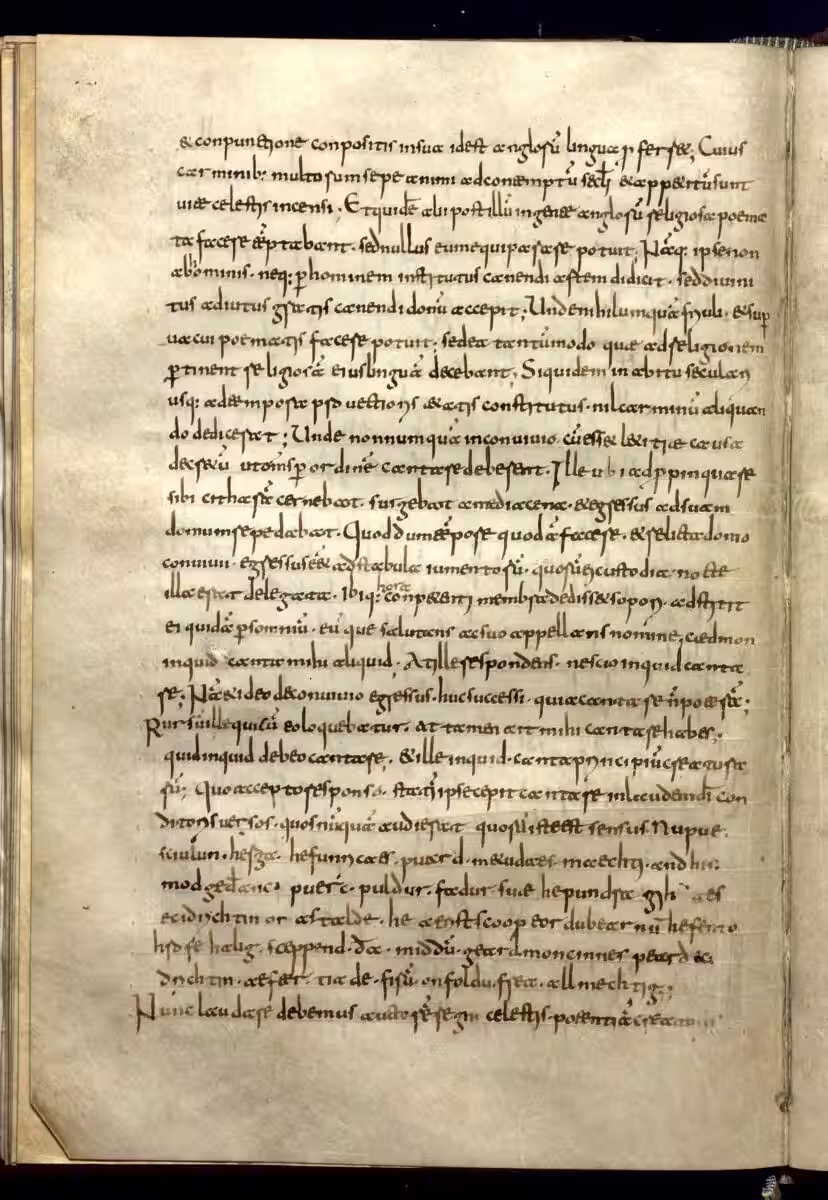 & conpunctione conpositis in sua id est anglosū lingua pferret; Cuius
carminibꝫ multorum sepe animi ad contemptū sęcłi & appetitū sunt
uitæ celestis incensi; Et quidē alii post illū in gente anglorū religiosa poema
ta facere tēptabant. sed nullus eum equiparare potuit; Nāqꝫ ipse non
ab hominis. neqꝫ ꝑ hominem institutus canendi artem didicit. sed diuini
tus adiutus gratis canendi donū accepit; Unde nihil umquā friuoli. & sup
uacui poematis facere potuit; sed ea tantūmodo quæ ad religionem
ꝑtinent religiosā eius linguā decebant; Siquidem in abitu seculari
usqꝫ ad tempora prouectioris ætatis constitutus. nil carminū aliquan
do dedicerat; Unde nonnumquā in conuiuio cū esset lętitiæ causa
decretū ut om̄s ꝑ ordinē cantare deberent. Ille ubi adpropinquare
sibi citharā cernebat. surgebat a media cena. & egressus ad suam
domum repedabat. Quod dum tēpore quodā faceret. & relicta domo
conuiuii. egressus eēt ad stabula iumentorū. quorū ei custodia nocte
illa erat delegata. Ibiqꝫ hora conpetenti membra dedisset sopori. adstitit
ei quidā ꝑ somniū. eūque salutans ac suo appellans nomine; cædmon
inquid canta mihi aliquid. At ille respondens. nescio inquid canta
re; Nā & ideo de conuiuio egressus. huc successi. quia cantare n̄ poterā;
Rursū ille qui cū eo loquebatur. Attamen ait mihi cantare habes;
quid inquid debeo cantare. & ille inquid. canta principiū creatura
rū; Quo accepto responso. statī ipse cepit cantare in laudem dī con
ditoris uersos. quos nūquā audierat quorū iste est sensus. Nu pue.
sciulun. hergea. hefunricaes. puard. metudaes. maechti. and his
mod gedanc. puerc. puldur. fadur. sue he pundra gih aes
eci drichtin or astalde. he aerist scoop eor dubearnū hefen to
hrofe halig. sceppend. ða. middū. geard moncinnes peard eci
drichtin. aefter. tiade. firū. on foldu. frea. allmechtig;
Nunc laudare debemus auctorē regni celestis. potentiā creatoris